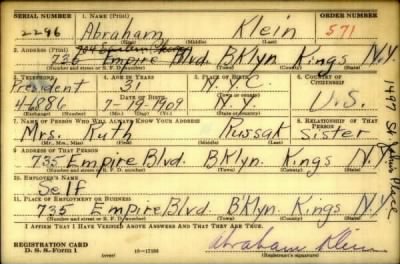 SERIAL NUMBER 1. NAME (Print) ORDER NUMBER
2296 Abraham Klein 571
(First) (Middle) (Last)
2. ADDRESS (Print)
735 Empire Blvd. BKlyn. Kings N.Y.
(Number and street or R. F. D. number) (Town) (County) (State)
3. TELEPHONE 4. AGE IN YEARS 5. PLACE OF BIRTH 6. COUNTRY OF CITIZENSHIP
President 31 N.Y.C.
DATE OF BIRTH
4-6886 7-19-1909 N.Y. U.S.
(Exchange) (Number) (Mo.) (Day) (Yr.) (State or country)
7. NAME OF PERSON WHO WILL ALWAYS KNOW YOUR ADDRESS 8. RELATIONSHIP OF THAT PERSON
Mrs. Ruth Kussak Sister
(Mr., Mrs., Miss) (First) (Middle) (Last)
9. ADDRESS OF THAT PERSON
735 Empire Blvd. BKlyn. Kings N.Y.
(Number and street or R. F. D. number) (Town) (County) (State)
10. EMPLOYER'S NAME
Self
11. PLACE OF EMPLOYMENT OR BUSINESS
735 Empire Blvd. BKlyn. Kings N.Y.
(Number and street or R. F. D. number) (Town) (County) (State)
I AFFIRM THAT I HAVE VERIFIED ABOVE ANSWERS AND THAT THEY ARE TRUE.
REGISTRATION CARD
D. S. S. Form 1 (over) Abraham Klein
(Registrant's signature)
1497 St. Johns Place